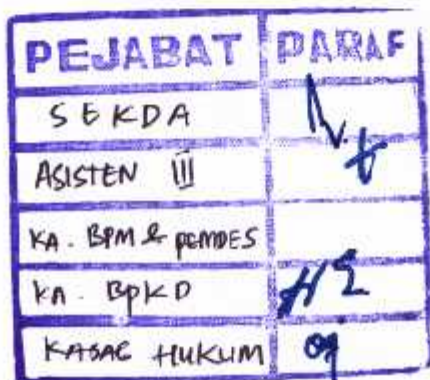 PEJABAT PARAF
SEKDA
ASISTEN III
KA. BPM & PEMDES
KA. BPKD
KABAG HUKUM